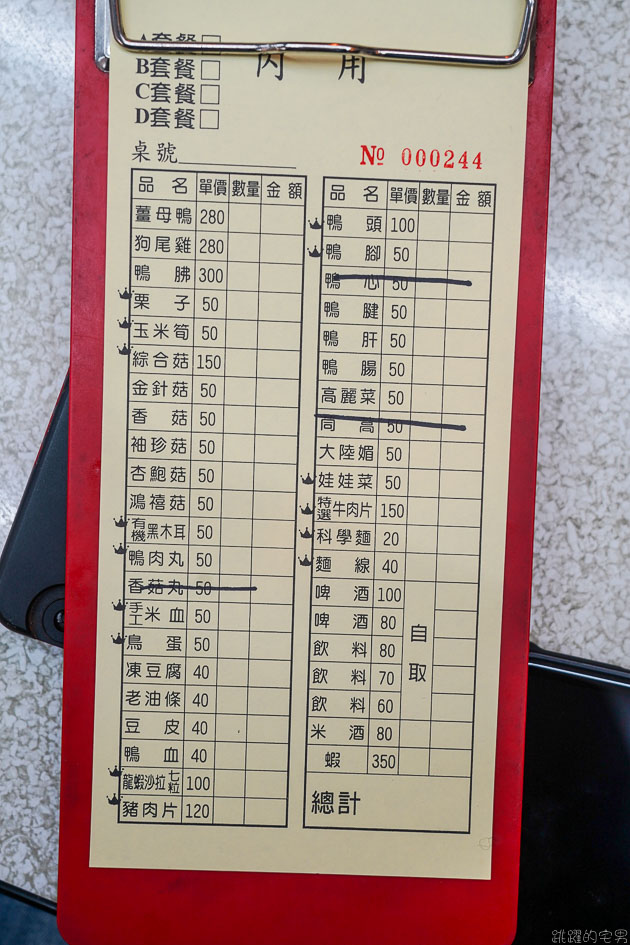 A套餐□
內 用
B套餐□
C套餐□
D套餐□
桌號
№ 000244
品 名 單價 數量 金 額
薑母鴨 280
狗尾雞 280
鴨 胇 300
栗 子 50
玉米筍 50
綜合菇 150
金針菇 50
香 菇 50
袖珍菇 50
杏鮑菇 50
鴻禧菇 50
有機黑木耳 50
鴨肉丸 50
香菇丸 50
手工米血 50
鳥蛋 50
凍豆腐 40
老油條 40
豆 皮 40
鴨 血 40
龍蝦沙拉七粒 100
豬肉片 120
品 名 單價 數量 金 額
鴨 頭 100
鴨 腳 50
鴨 心 50
鴨 腱 50
鴨 肝 50
鴨 腸 50
高麗菜 50
茼 蒿 50
大陸媚 50
娃娃菜 50
特選牛肉片 150
科學麵 20
麵 線 40
啤 酒 100
啤 酒 80
飲 料 80
飲 料 70
飲 料 60
自取
米 酒 80
蝦 350
總計
跳躍的宅男